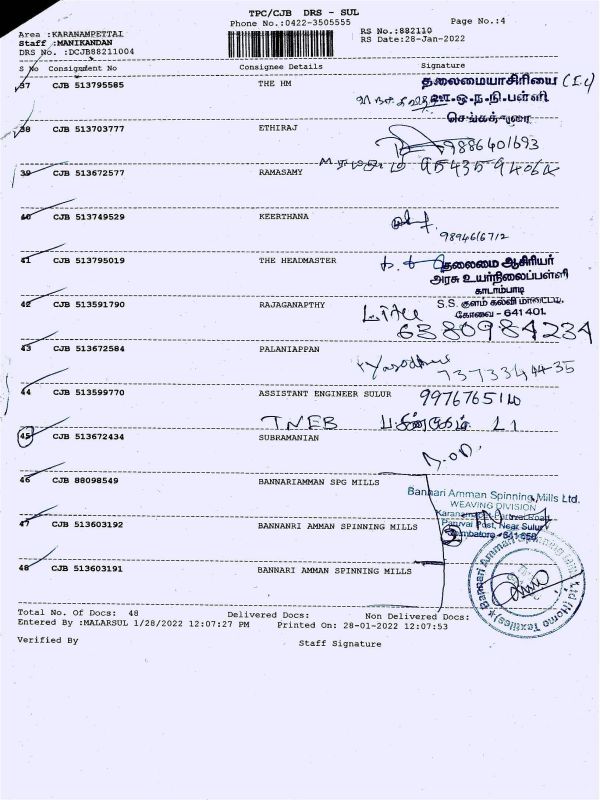 TPC/CJB DRS - SUL
Phone No.:0422-3505555
Page No.:4
Area :KARANAMPETTAI
RS No.:882110
Staff :MANIKANDAN
RS Date:28-Jan-2022
DRS No. :DCJB88211004
S No Consignment No Consignee Details Signature
37 CJB 513795585 THE HM
தலைமையாசிரியை (I.c)
ஊ.ஒ.ந.நி.பள்ளி
38 CJB 513703777 ETHIRAJ
9886401693
39 CJB 513672577 RAMASAMY
40 CJB 513749529 KEERTHANA
9894616712
41 CJB 513795019 THE HEADMASTER
தலைமை ஆசிரியர்
அரசு உயர்நிலைப்பள்ளி
காடாம்பாடி
S.S. குளம் கல்வி மாவட்டம்,
கோவை - 641401.
42 CJB 513591790 RAJAGANAPTHY
6380984234
43 CJB 513672584 PALANIAPPAN
7373344435
44 CJB 513599770 ASSISTANT ENGINEER SULUR
TNEB
45 CJB 513672434 SUBRAMANIAN
46 CJB 88098549 BANNARIAMMAN SPG MILLS
Bannari Amman Spinning Mills Ltd.
WEAVING DIVISION
Paruvai Post, Near Sulur
Coimbatore - 641658
47 CJB 513603192 BANNANRI AMMAN SPINNING MILLS
48 CJB 513603191 BANNARI AMMAN SPINNING MILLS
Total No. Of Docs: 48 Delivered Docs: Non Delivered Docs:
Entered By :MALARSUL 1/28/2022 12:07:27 PM Printed On: 28-01-2022 12:07:53
Verified By Staff Signature